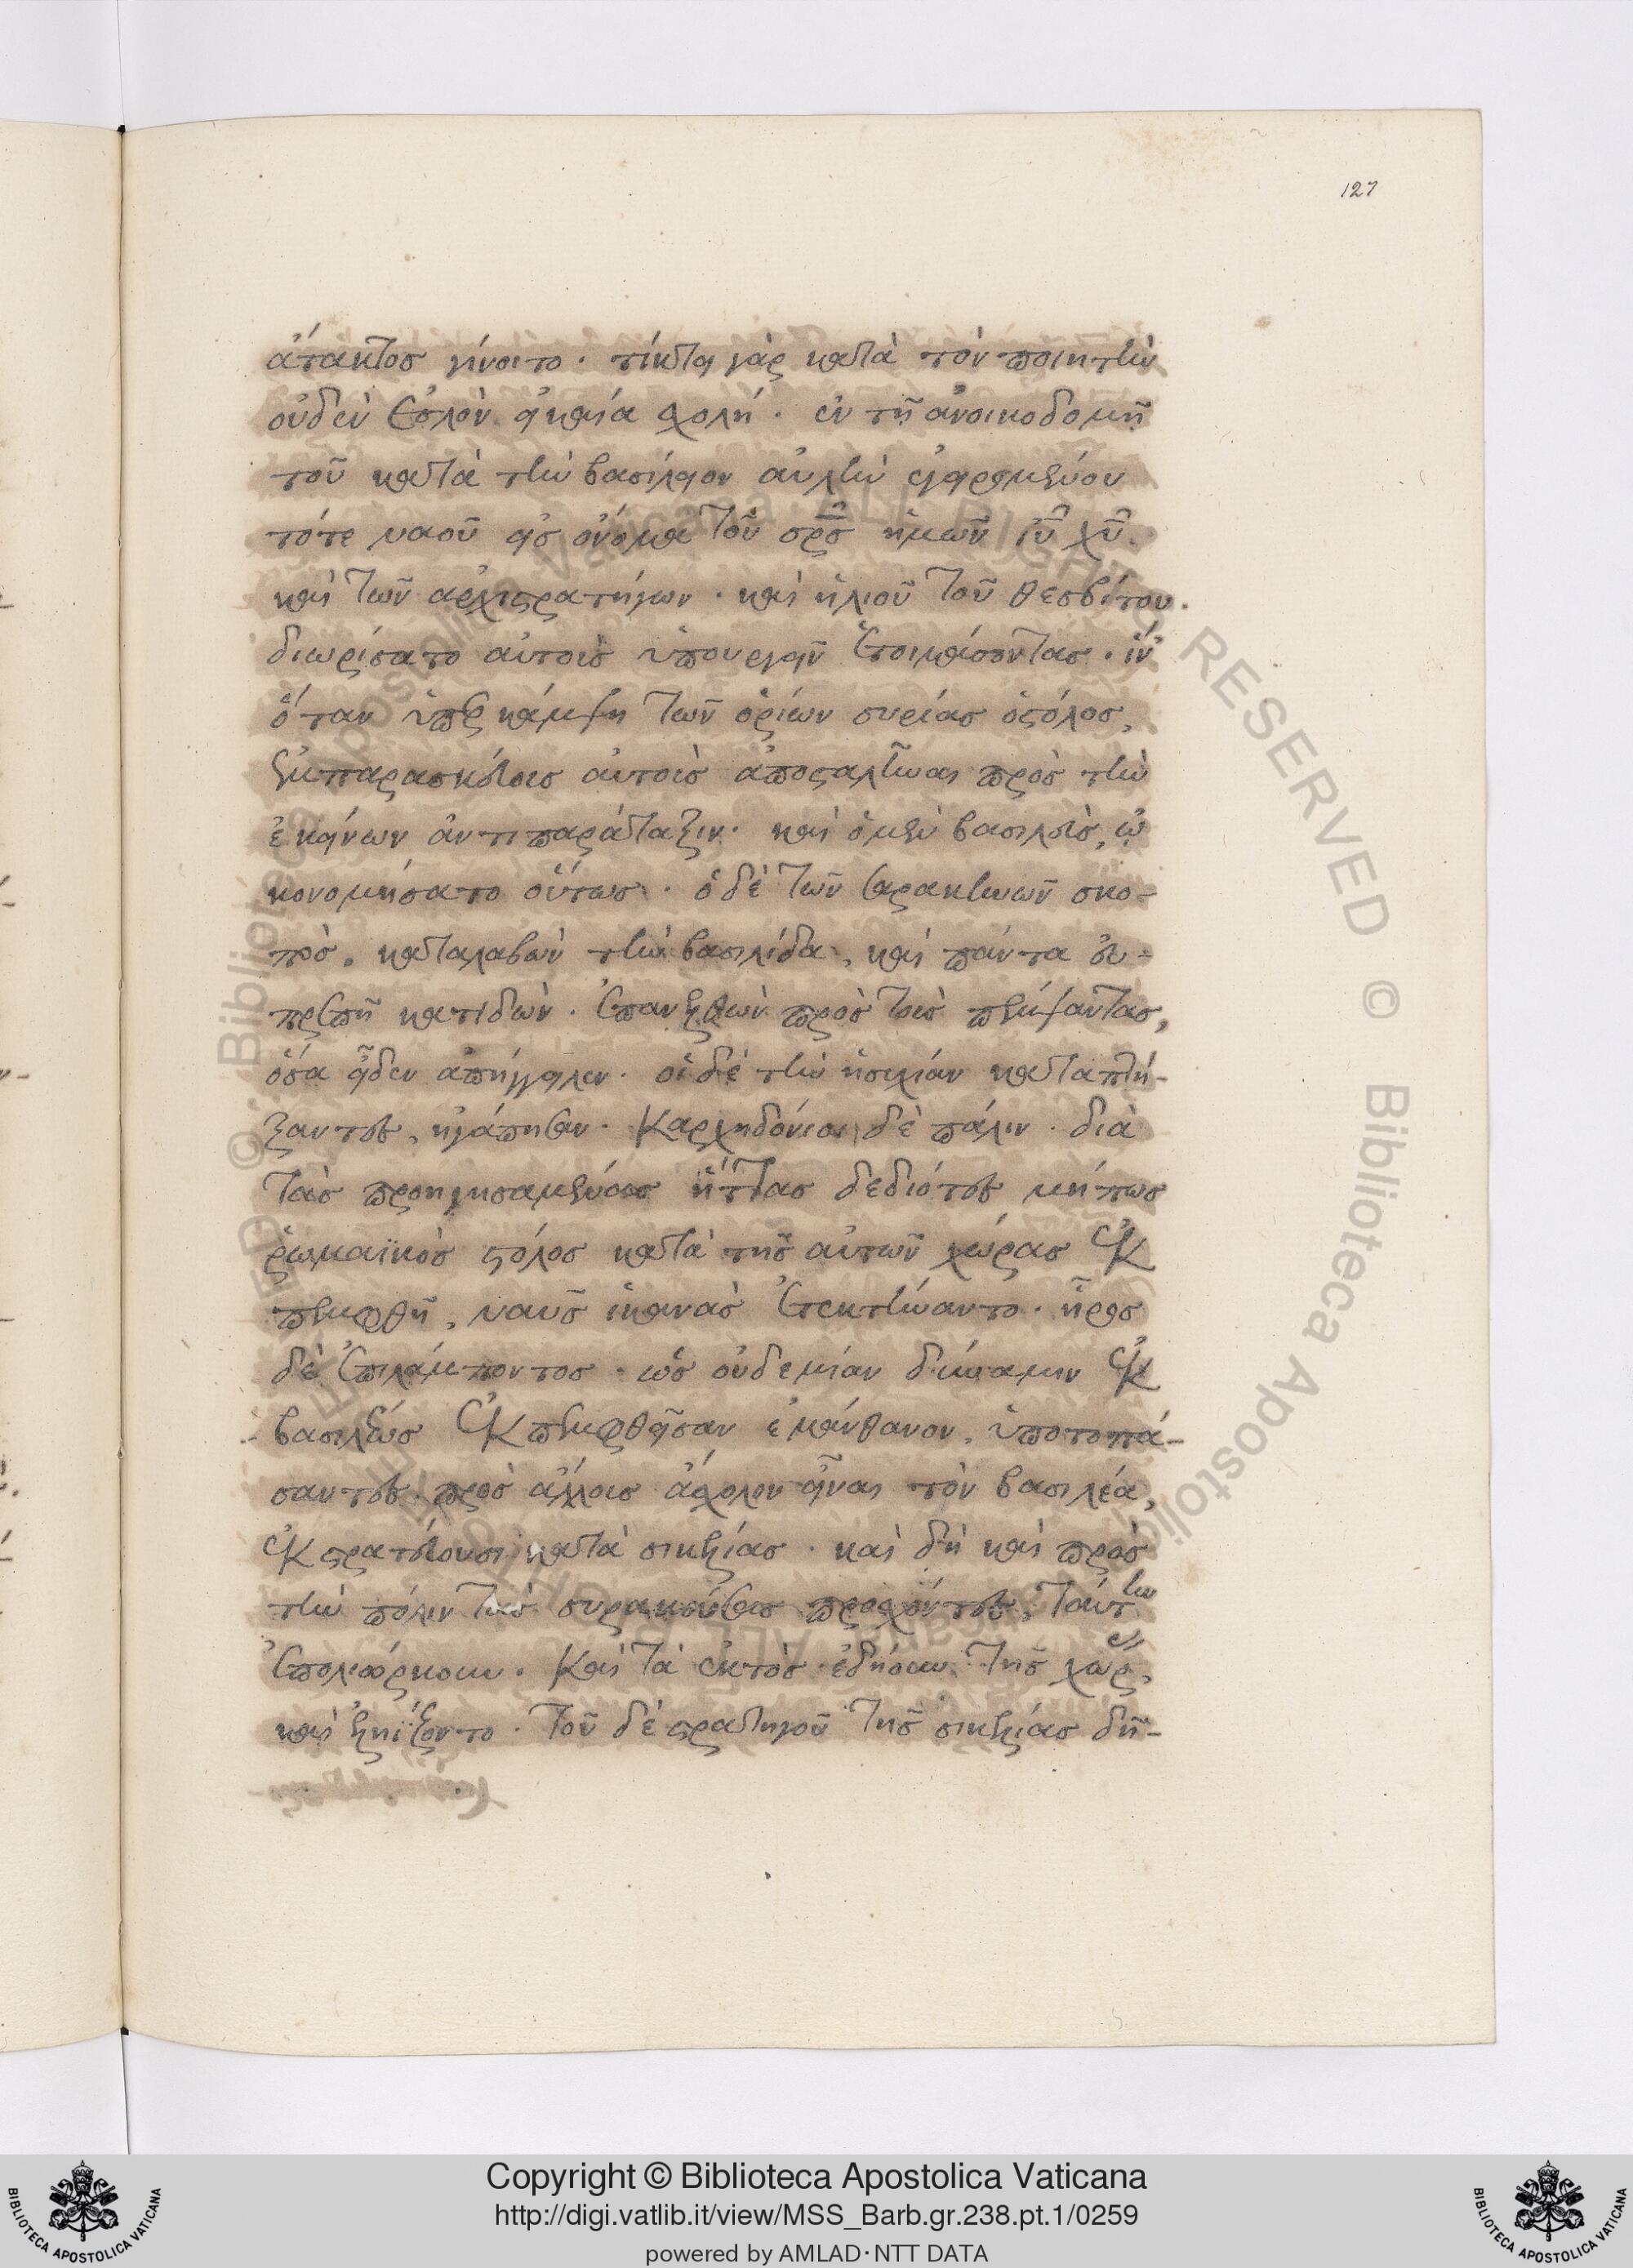 127
ἄτακτος γίνοιτο. τίκτει γὰρ κατὰ τὸν ποιητὴν
οὐδὲν ἐσλὸν εἰκαία σχολή. ἐν τῇ ἀνοικοδομῇ
τοῦ κατὰ τὴν βασίλειον αὐλὴν ἐγειρομένου
τότε ναοῦ εἰς ὄνομα τοῦ σρς ἡμῶν ιυ χυ.
καὶ τῶν ἀρχιστρατήγων. καὶ ἡλιοῦ τοῦ θεσβίτου.
διωρίσατο αὐτοὺς ὑπουργεῖν ἑτοιμάσοντας. ἵν
ὅταν ὑπερκάμψη τῶν ὁρίων συρίας ὁ στόλος,
ἐμπαρασκεύοις αὐτοὺς ἀποσταλῆναι πρὸς τὴν
ἐκείνων ἀντιπαράταξιν. καὶ ὁ μὲν βασιλεὺς, ᾠ
κονομήσατο οὕτως. ὁ δὲ τῶν σαρακηνῶν σκο-
πὸς, καταλαβὼν τὴν βασιλίδα, καὶ πάντα εὐ-
πρεπῆ κατιδὼν. ἐπανελθὼν πρὸς τοὺς πέμψαντας,
ὅσα εἶδεν ἀπήγγειλεν. οἱ δὲ τὴν ἡσυχίαν καταπλή-
ξαντες, ἠγάπησαν. Καρχηδόνιοι δὲ πάλιν. διὰ
τὰς προηγησαμένας ἥττας δεδιότες μήπως
ῥωμαϊκὸς στόλος κατὰ τῆς αὐτῶν χώρας ἐκ
πεμφθῇ, ναῦς ἱκανὰς ἐτεκτήναντο. ἦρος
δὲ ἐπιλάμποντος. ὡς οὐδεμίαν δύναμιν ἐκ
βασιλέως ἐκπεμφθεῖσαν ἐμάνθανον, ὑποτοπά-
σαντες πρὸς ἄλλοις ἄσχολον εἶναι τὸν βασιλέα,
ἐκστρατεύουσι κατὰ σικελίας. καὶ δὴ καὶ πρὸς
τὴν πόλιν τὰς συρακούσας προσχόντες, ταύτην
ἐπολιόρκουν. Καὶ τὰ ἐκτὸς ἐδῄουν τῆς χώρ,
καὶ ἐληΐζοντο. τοῦ δὲ στρατηγοῦ τῆς σικελίας δη-
Copyright © Biblioteca Apostolica Vaticana
http://digi.vatlib.it/view/MSS_Barb.gr.238.pt.1/0259
powered by AMLAD·NTT DATA
BIBLIOTECA APOSTOLICA VATICANA
BIBLIOTECA APOSTOLICA VATICANA